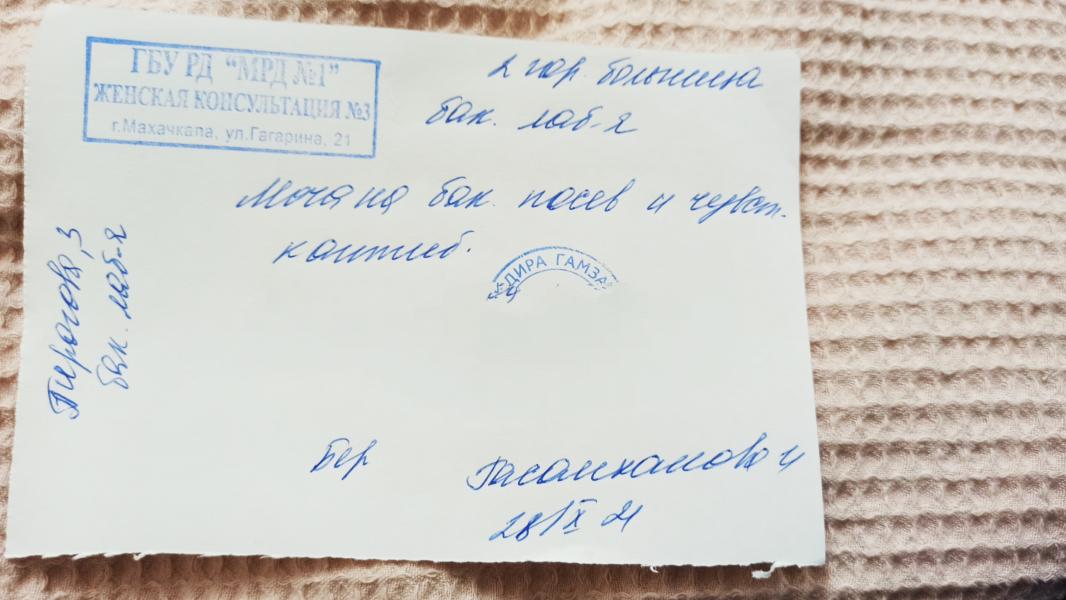 ГБУ РД "МРД №1"
ЖЕНСКАЯ КОНСУЛЬТАЦИЯ №3
г.Махачкала, ул.Гагарина, 21
2 гор. больница
бак. лаб-я
Моча на бак. посев и чувст.
к антиб.
ДИРА ГАМЗА
Пирогова, 3
бак. лаб-я
Бер
Гасанханова и
28/IX 21